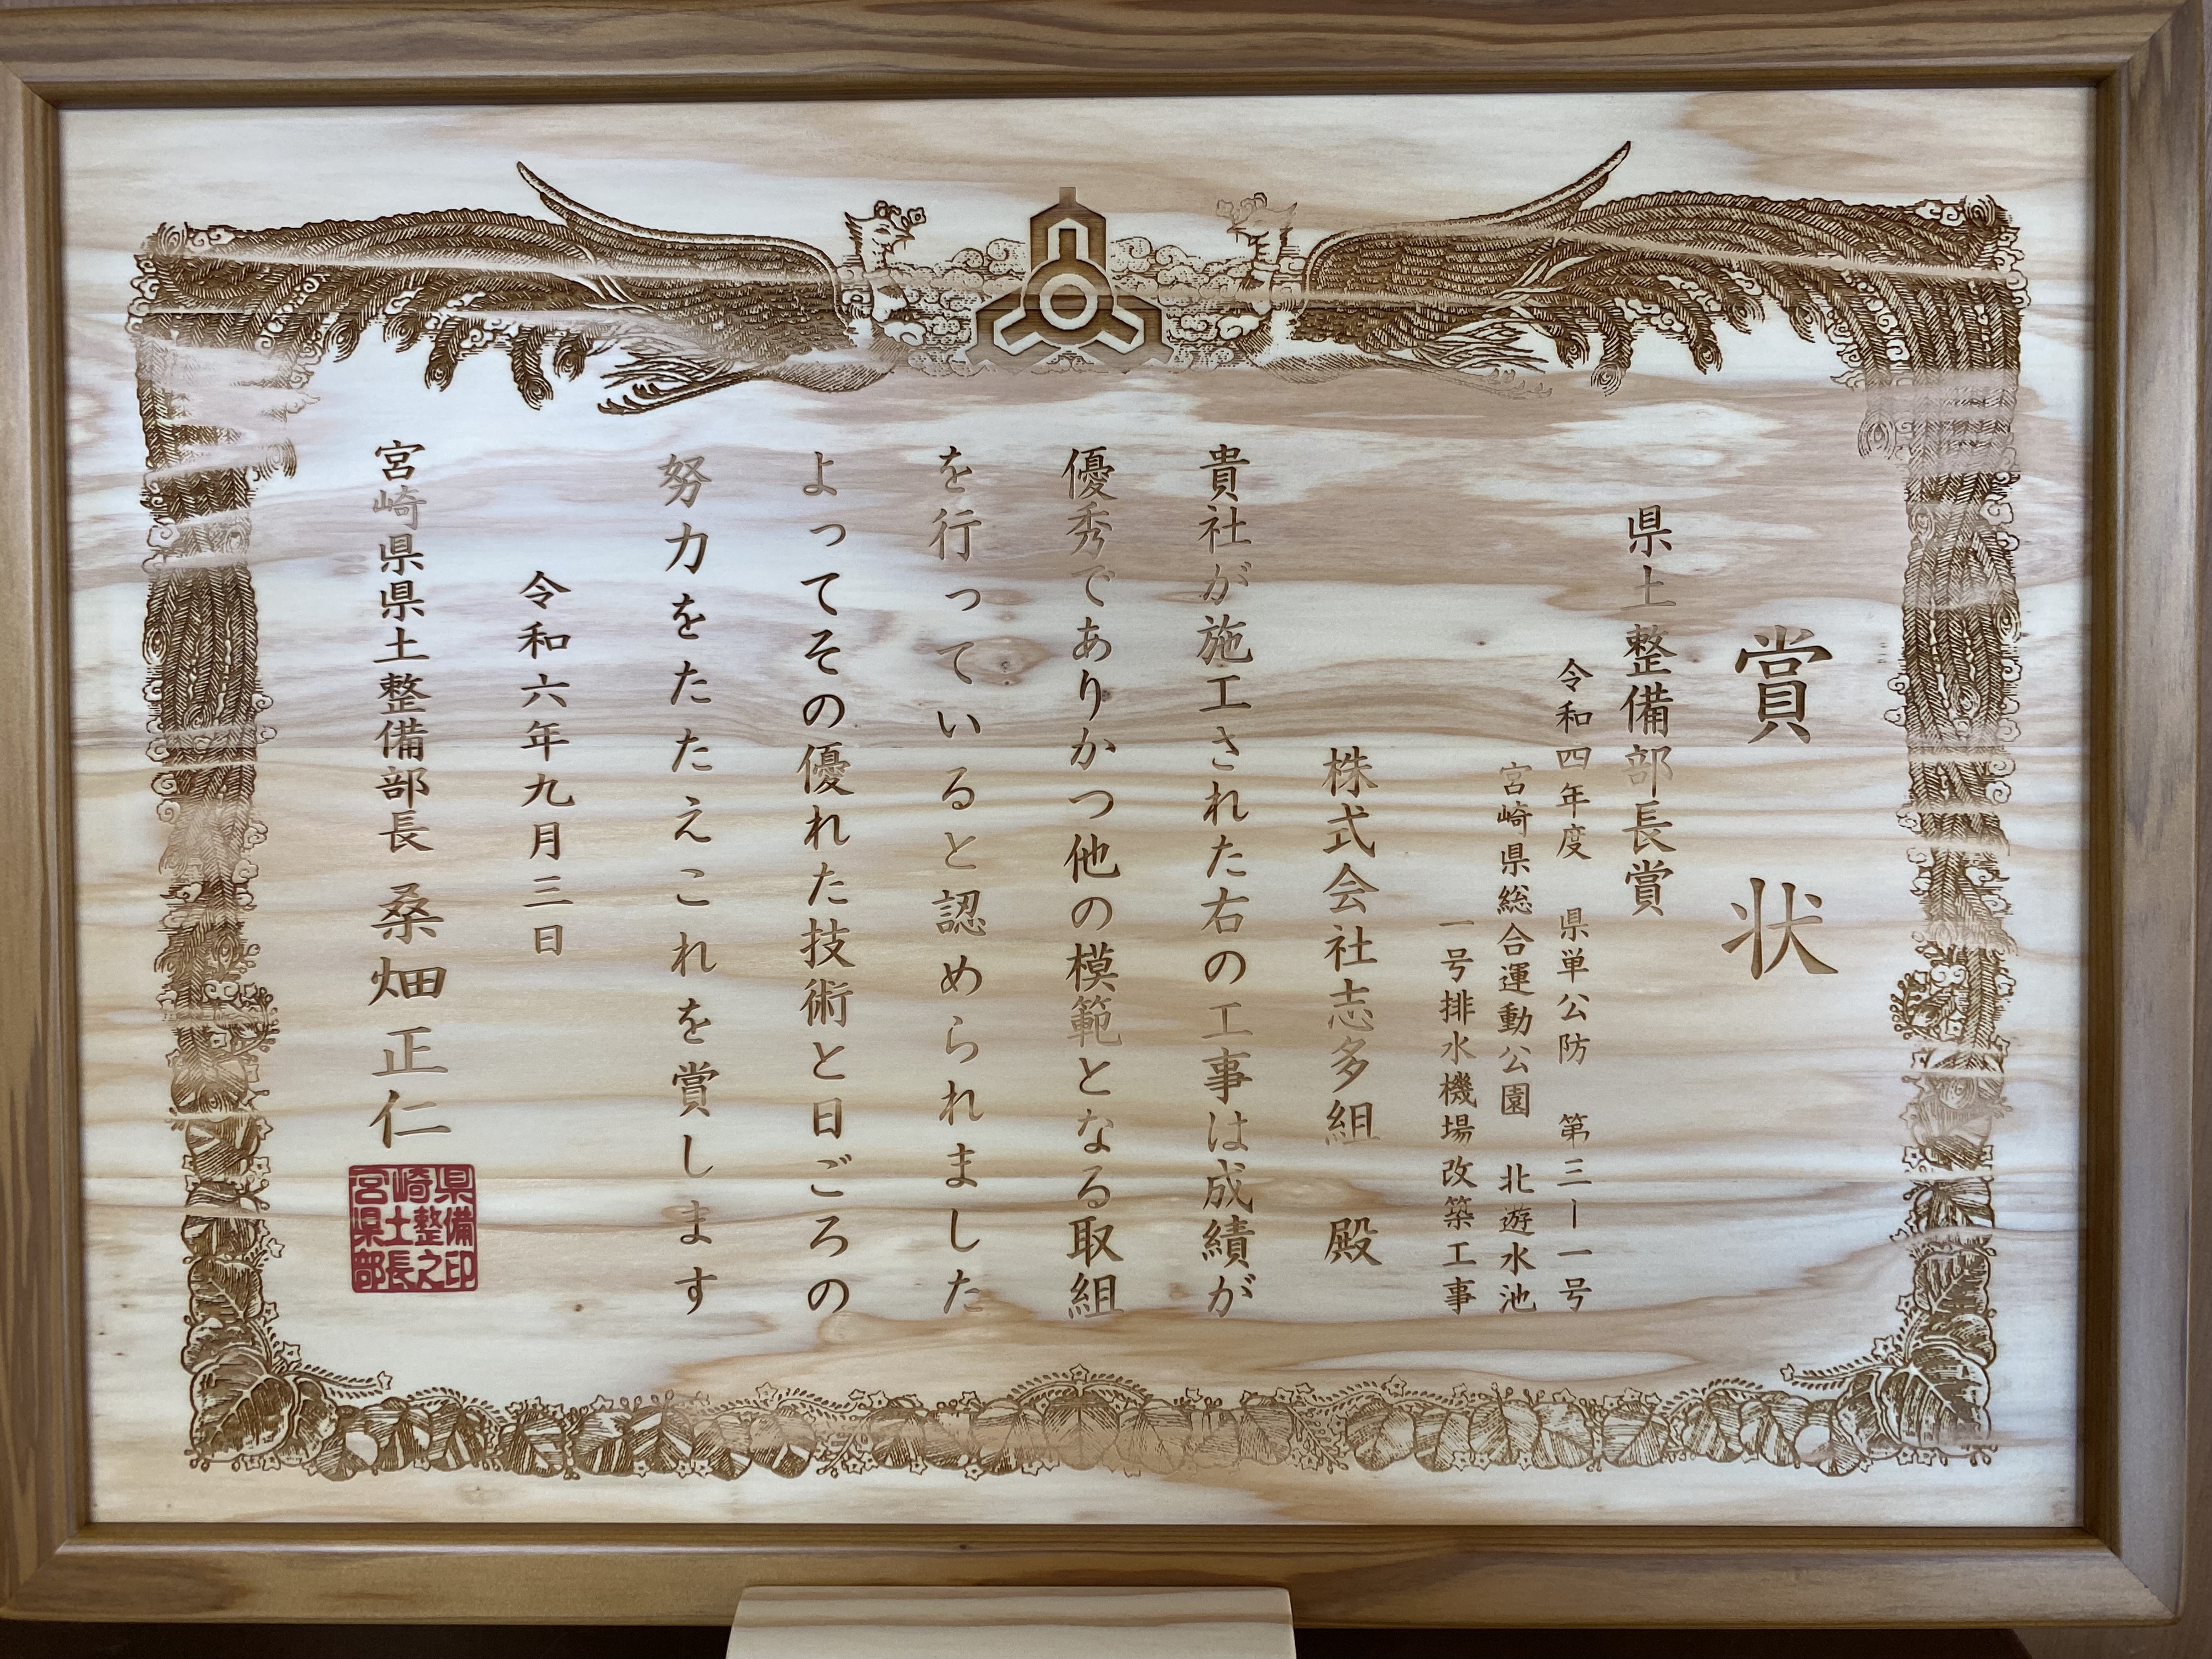 賞状
県土整備部長賞
令和四年度　県単公防　第三ー一号
宮崎県総合運動公園　北遊水池
一号排水機場改築工事
株式会社志多組　殿
貴社が施工された右の工事は成績が
優秀でありかつ他の模範となる取組
を行っていると認められました
よってその優れた技術と日ごろの
努力をたたえこれを賞します
令和六年九月三日
宮崎県県土整備部長　桑畑正仁
宮崎県
県土整備
部長之印